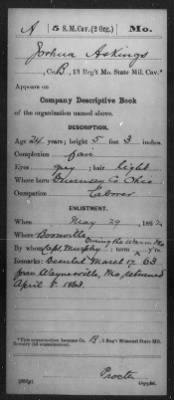 A | 5 S.M.Cav.(2 Org.) | Mo.
Joshua Askings
, Co. B, 13 Reg't Mo. State Mil. Cav.*
Appears on
Company Descriptive Book
of the organization named above.
DESCRIPTION.
Age 24 years; height 5 feet 3 inches.
Complexion fair
Eyes grey; hair light
Where born Guernsey Co. Ohio
Occupation Laborer
ENLISTMENT.
When May 29, 1862.
Where Boonville
During the War in Mo
By whom Capt Murphy; term y'rs.
Remarks: Deserted March 17 63
from Waynesville, Mo, returned
April 8 1863.
*This organization became Co. B, 5 Reg't Missouri State Mil.
Copyist.